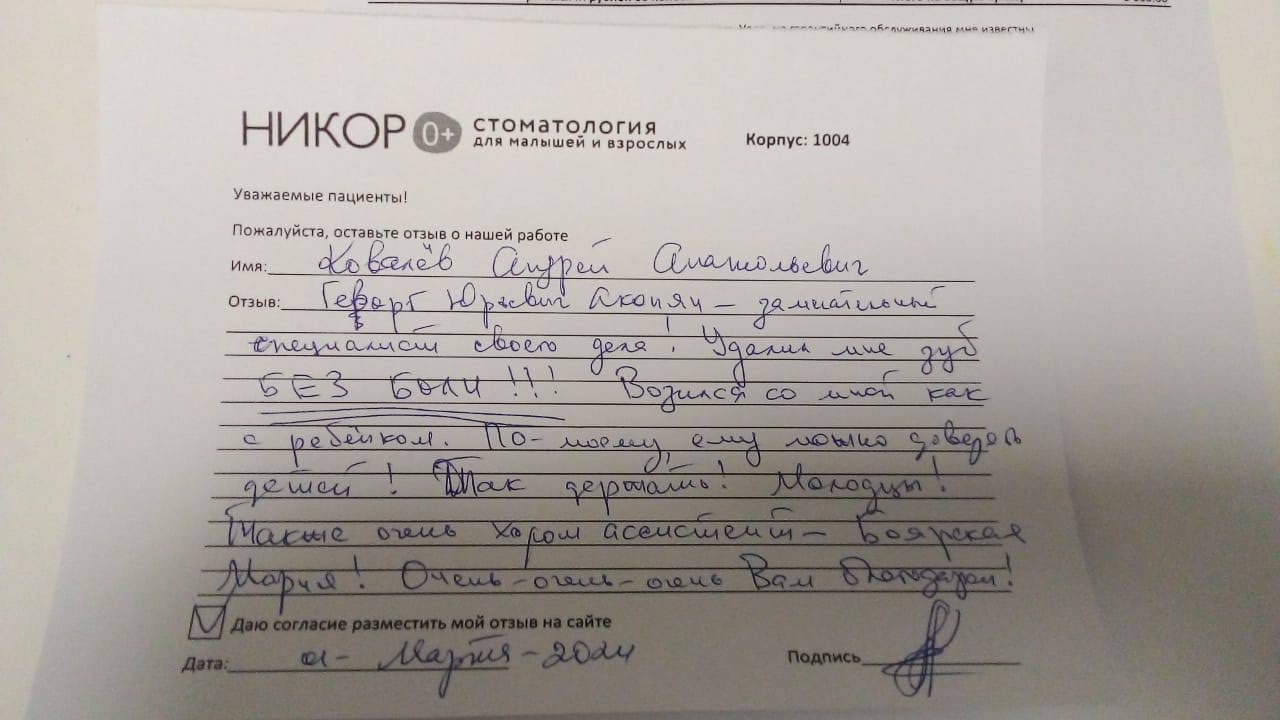 гарантийного обслуживания мне известны
НИКОР 0+ стоматология
для малышей и взрослых
Корпус: 1004
Уважаемые пациенты!
Пожалуйста, оставьте отзыв о нашей работе
Имя: Ковалёв Андрей Анатольевич
Отзыв: Юрьевич Акопян – замечательный
специалист своего дела! Удалил мне зуб
БЕЗ БОЛИ!!! Возился со мной как
с ребёнком. По-моему, ему можно доверять
детей! Так держать! Молодцы!
Также очень хорош ассистент – Боярская
Мария! Очень-очень-очень Вам благодарен!
Даю согласие разместить мой отзыв на сайте
Дата: 01 - Марта - 2024
Подпись